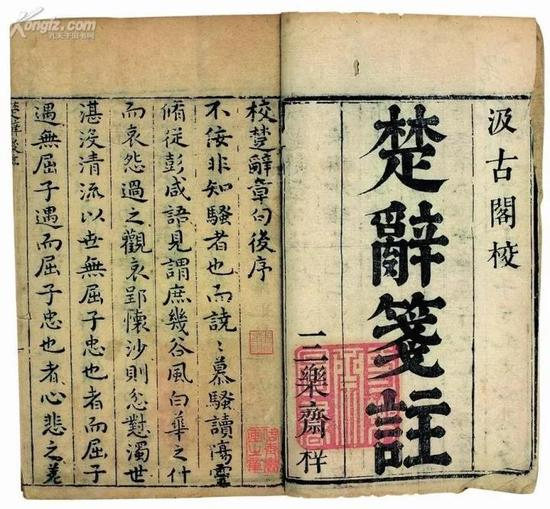 Kongfz.com
孔夫子旧书网
汲古閣校
楚辭箋註
三樂齋梓
校楚辭章句後序
不佞非知騷者也而説〻慕騷讀
俯從彭咸語見謂庶幾谷風白華之什
而哀怨過之觀哀郢懷沙則忿懟濁世
湛沒清流以世無屈子忠也者而屈子
遇無屈子遇而屈子忠也者心悲之